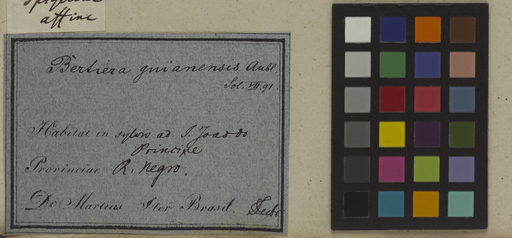 affine
Bertiera guianensis Aubl.
Sol. VII. 91.
Habitat in sylvis ad S. Joao do
Principe
Provinciae R. Negro.
Dr. Martius Iter Brasil. Decbr.